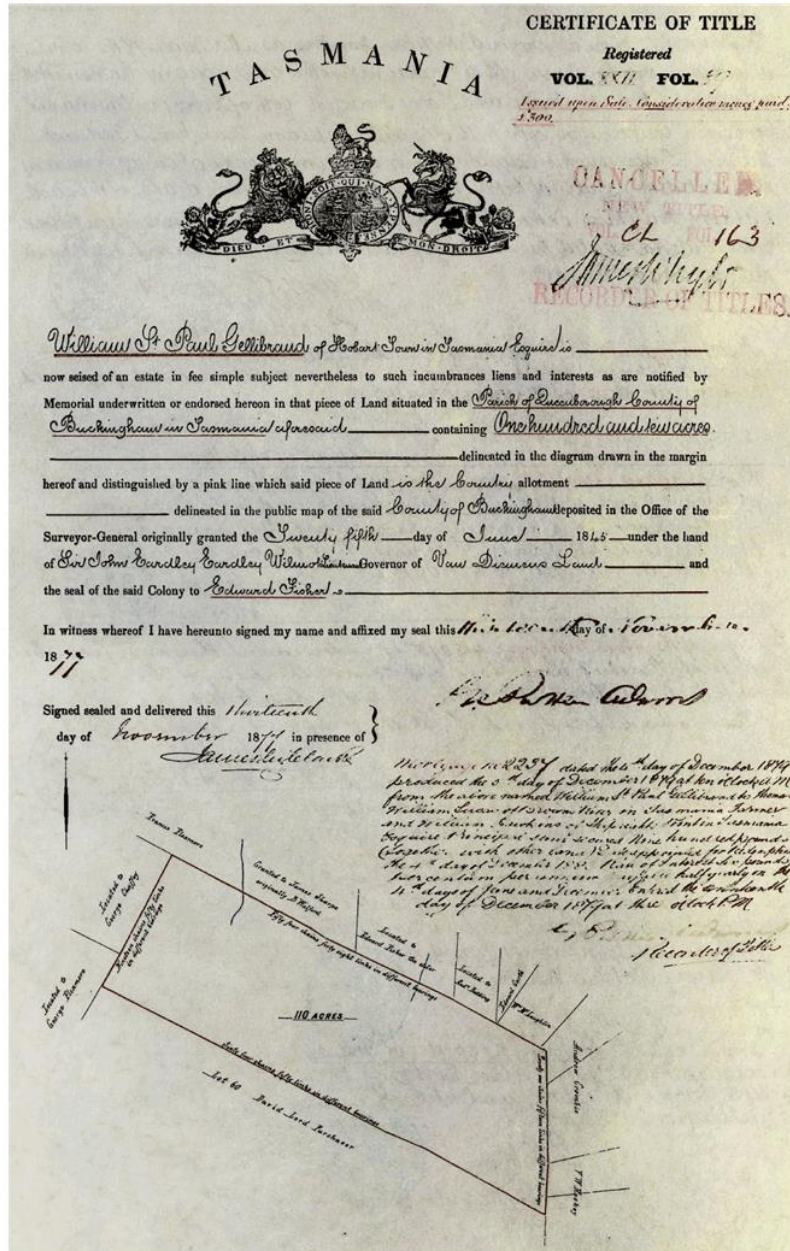 CERTIFICATE OF TITLE
TASMANIA
Registered
VOL. FOL.
Issued upon Sale. Consideration money paid
£300.
HONI·SOIT·QUI·MAL·Y·PENSE
DIEU ET MON DROIT
CANCELLED
NEW TITLE
VOL. CL FOL. 163
RECORDER OF TITLES.
William St. Paul Gellibrand of Hobart Town in Tasmania Esquire is
now seised of an estate in fee simple subject nevertheless to such incumbrances liens and interests as are notified by
Memorial underwritten or endorsed hereon in that piece of Land situated in the Parish of Queenborough County of
Buckingham in Tasmania aforesaid containing One hundred and ten acres.
delineated in the diagram drawn in the margin
hereof and distinguished by a pink line which said piece of Land is the Country allotment
delineated in the public map of the said County of Buckingham deposited in the Office of the
Surveyor-General originally granted the Twenty fifth day of June 1845 under the hand
of Sir John Eardley Eardley Wilmot Lieutenant Governor of Van Diemens Land and
the seal of the said Colony to Edward Fisher
In witness whereof I have hereunto signed my name and affixed my seal this thirteenth day of November
1877
Signed sealed and delivered this thirteenth
day of November 1877 in presence of
Mortgage No 2237 dated the 4th day of December 1877
produced the 5th day of December 1877 at ten oClock A M
from the above named William St. Paul Gellibrand to Thomas
William of Brown's River in Tasmania Farmer
and William Jenkins of Shipwrights Point in Tasmania
Esquire Principal sum secured Nine hundred pounds
(together with other land) Date appointed for Redemption
the 4th day of December Rate of Interest Six pounds
per centum per annum half yearly on the
4th days of June and December Entered the
day of December 1877 at three oClock P M
Recorder of Titles
Located to
George
Located to
George
Granted to James
originally
Fifty four chains forty eight links in different bearings
Located to
Edward Fisher the elder
Located to
Edward
Wm McLaughlin
Andrew Crombie
110 ACRES
chains fifty links in different bearings
chains fifty links in different bearings
Twenty one chains links in different bearings
Lot 60 David Lord Purchaser
T W